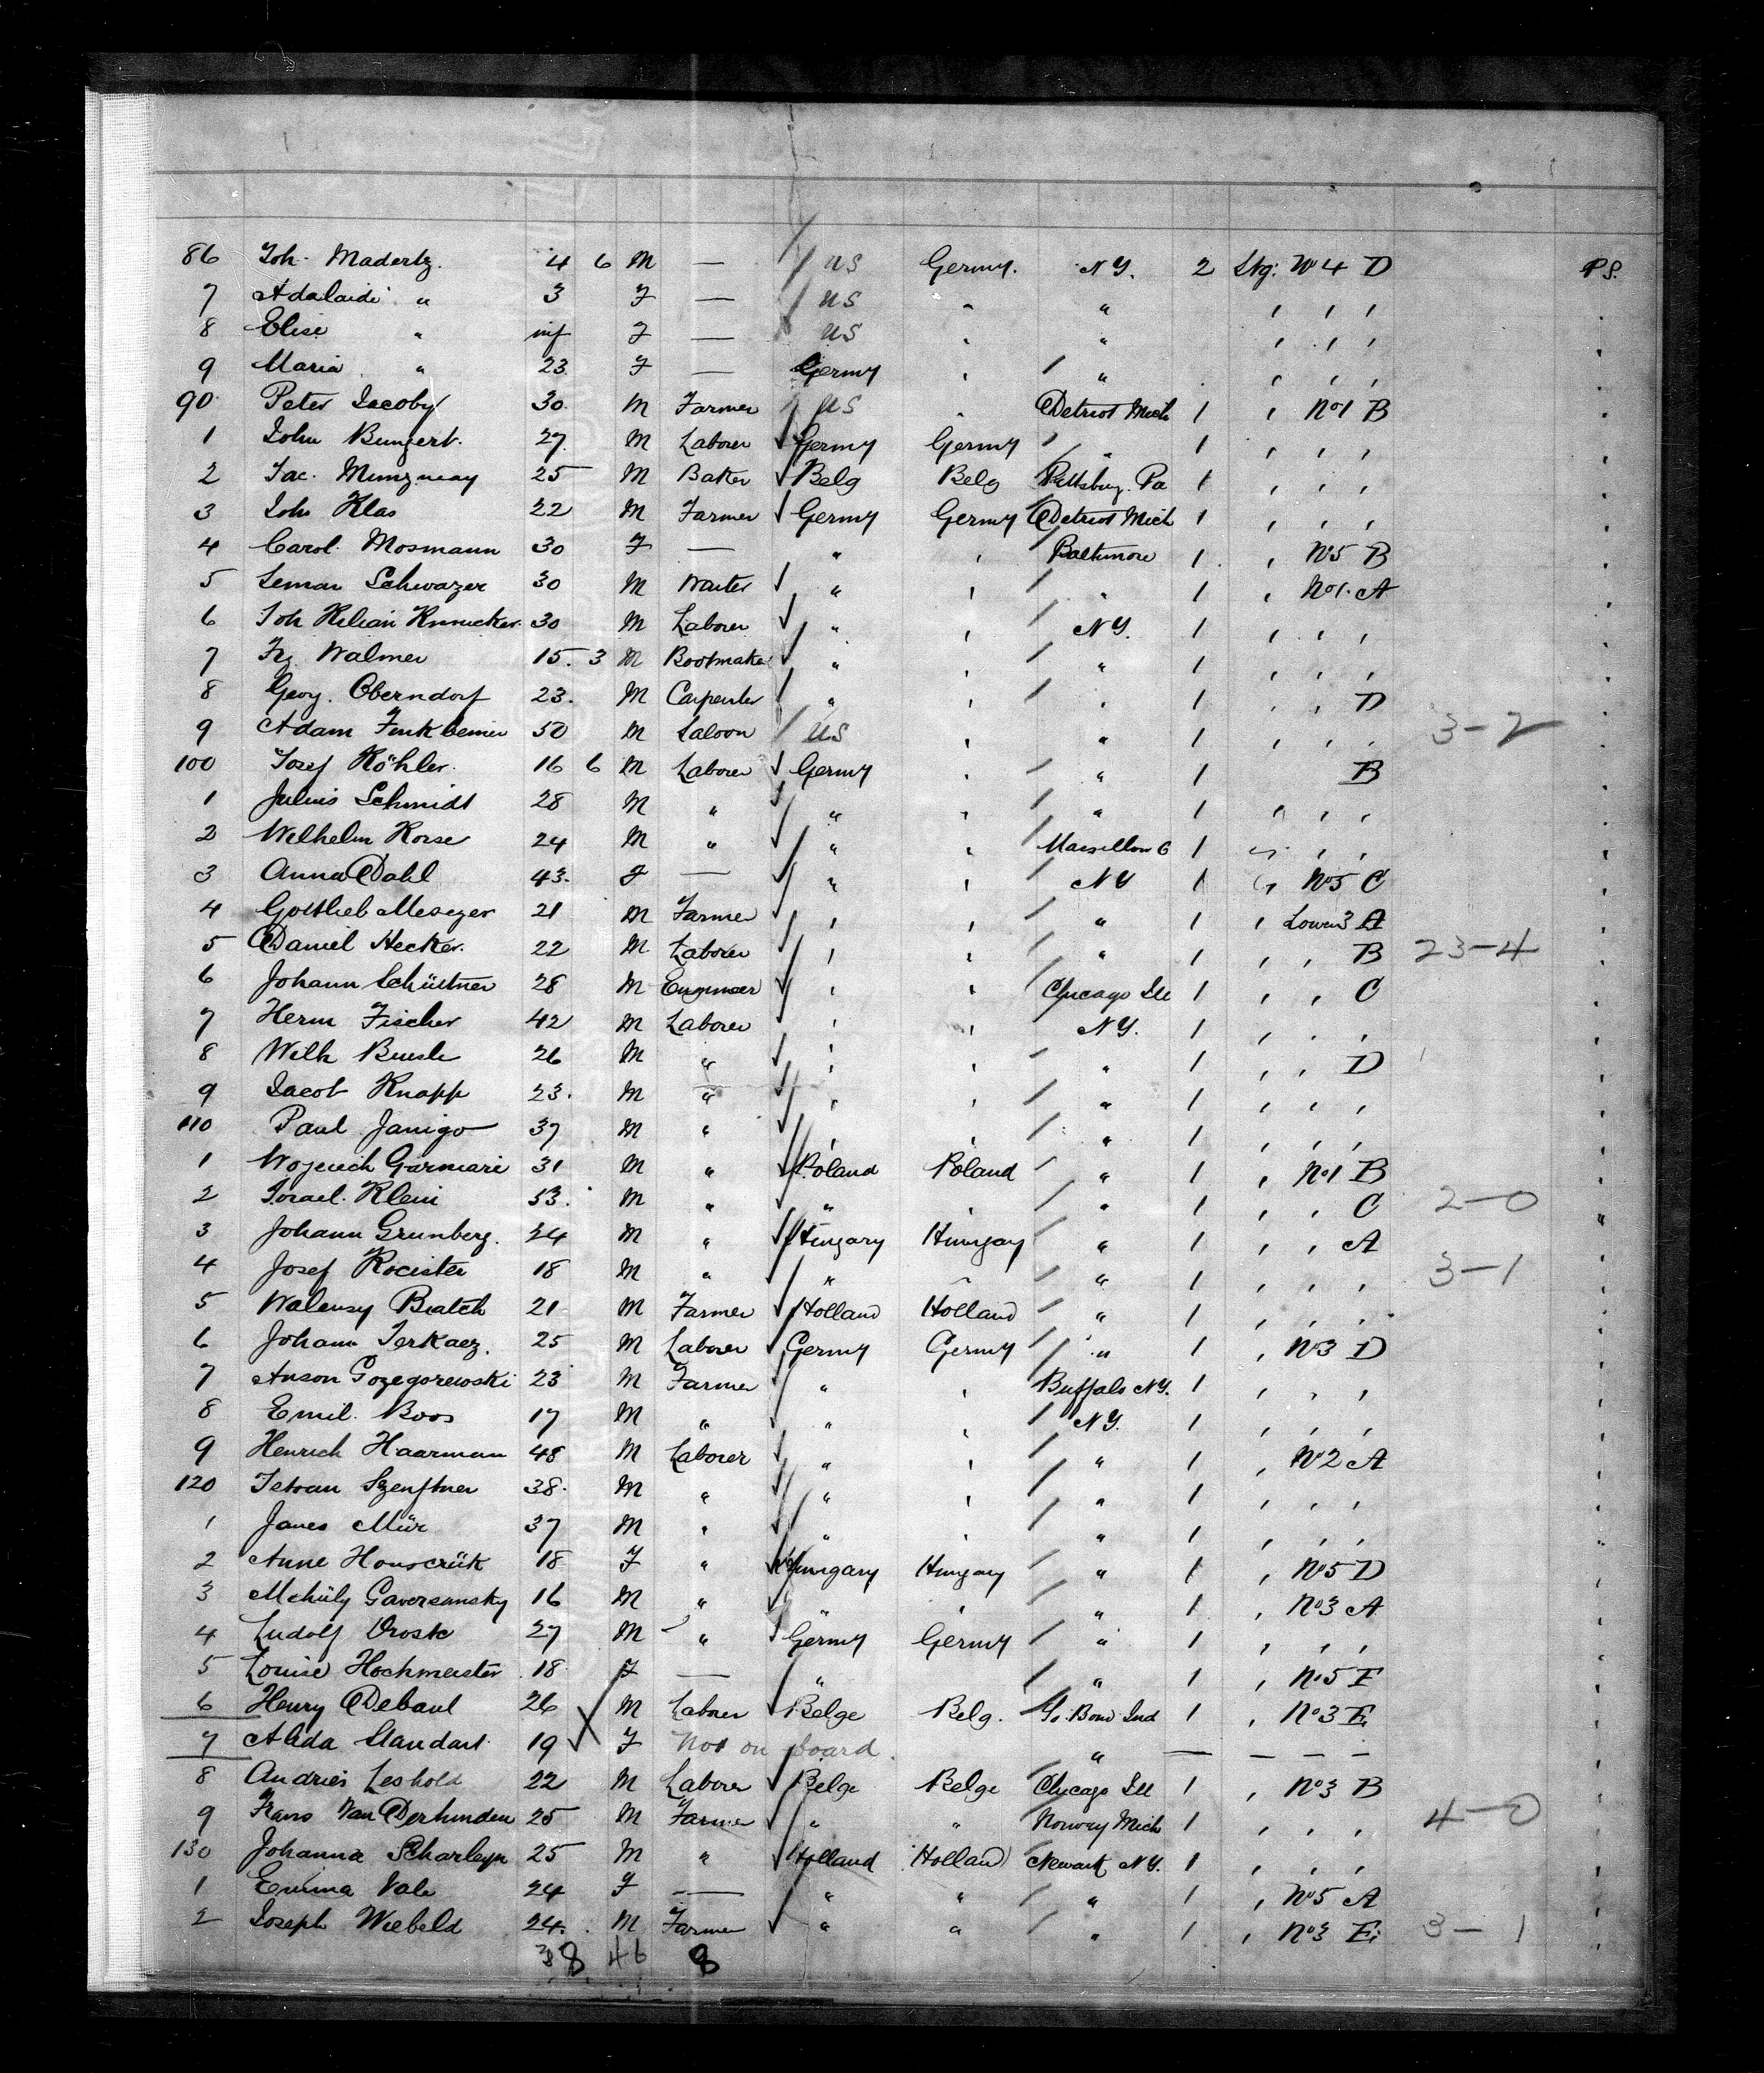 86 Joh. Madertz. 4 6 M — US Germy. N.Y. 2 Stg: No 4 D P.S.
7 Adalaide " 3 F — US " " ' ' '
8 Elise " inf F — US " " ' ' '
9 Maria " 23 F — Germy " " ' ' '
90 Peter Jacoby 30. M Farmer US " Detriot Mich 1 ' No1 B
1 John Bungert. 27. M Laborer Germy Germy " 1 ' ' '
2 Jac. Munzmay 25 M Baker Belg Belg Pittsburg. Pa 1 ' ' '
3 John Klas 22 M Farmer Germy Germy Detriot Mich 1 ' ' '
4 Carol. Mosmann 30 F — " ' Baltimore 1 ' No5 B
5 Leman Schwazer 30 M Waiter " ' " 1 ' No1. A
6 Joh Kilian 30 M Laborer " ' N.Y. 1 ' ' '
7 Frz. Walmer 15. 3 M Bootmaker " ' " 1 ' ' '
8 Georg. Oberndorf 23. M Carpenter " ' " 1 ' ' D
9 Adam 50 M Saloon US ' " 1 ' ' ' 3-2
100 Josef Köhler. 16 6 M Laborer Germy ' " 1 B
1 Julius Schmidt 28 M " " ' " 1 ' ' '
2 Wilhelm Korse 24 M " " ' 1 " ' '
3 Anna Dahl 43. F — " ' N.Y 1 " No5 C
4 Gottlieb Meseger 21 M Farmer ' ' " 1 ' Lower 3 A
5 Daniel Hecker. 22 M Laborer ' ' " 1 ' ' B 23-4
6 Johann Schüttner 28 M Engineer ' ' Chicago Ill 1 ' ' C
7 Herm Fischer 42 M Laborer ' ' N.Y. 1 ' ' '
8 Wilh Buesle 26 M " ' ' " 1 ' ' D
9 Jacob Knapp 23. M " ' ' " 1 ' ' '
110 Paul Janigo 37 M " ' ' " 1 ' ' '
1 Wojciech Garmari 31 M " Poland Poland " 1 ' No1 B
2 Israel. Klein 53. M " " ' " 1 ' ' C 2-0
3 Johann Grunberg. 24 M " Hungary Hungay " 1 ' ' A
4 Josef Rocister 18 M " " " " 1 ' ' ' 3-1
5 Walensy Biatch 21 M Farmer Holland Holland " 1 ' ' '
6 Johann Terkaez. 25 M Laborer Germy Germy " 1 ' No3 D
7 Anson Gozegorewski 23 M Farmer " ' Buffalo N.Y. 1 ' ' '
8 Emil. Boos 17 M " " ' N.Y. 1 ' ' '
9 Henrich Haarman 48 M Laborer " ' " 1 ' No2 A
120 Szenftner 38. M " " ' " 1 ' ' '
1 Janes Müir 37 M " " ' " 1 ' ' '
2 Anne Houscrük 18 F " Hungary Hungary " 1 ' No5 D
3 Gaversansky 16 M " " ' " 1 ' No3 A
4 Ludolf Droste 27 M " Germy Germy " 1 ' ' '
5 Louise Hochmeister 18 F — " " 1 ' No5 E
6 Henry Debaul 26 M Laborer Belge Belg. So. Bend Ind 1 ' No3 E
7 Alida Standart 19 F Not on board " — — — —
8 Andries Leshold 22 M Laborer Belge Belge Chicago Ill 1 ' No3 B
9 Frans Van Derhinden 25 M Farmer " " Norway Mich 1 ' ' ' 4-0
130 Johanna Scharleyn 25 M " Holland Holland Newark N.Y. 1 ' ' '
1 Emma Vale 24 F — " " " 1 ' No5 A
2 Joseph Wiebeld 24. M Farmer " " " 1 ' No3 E 3-1
38 46 8